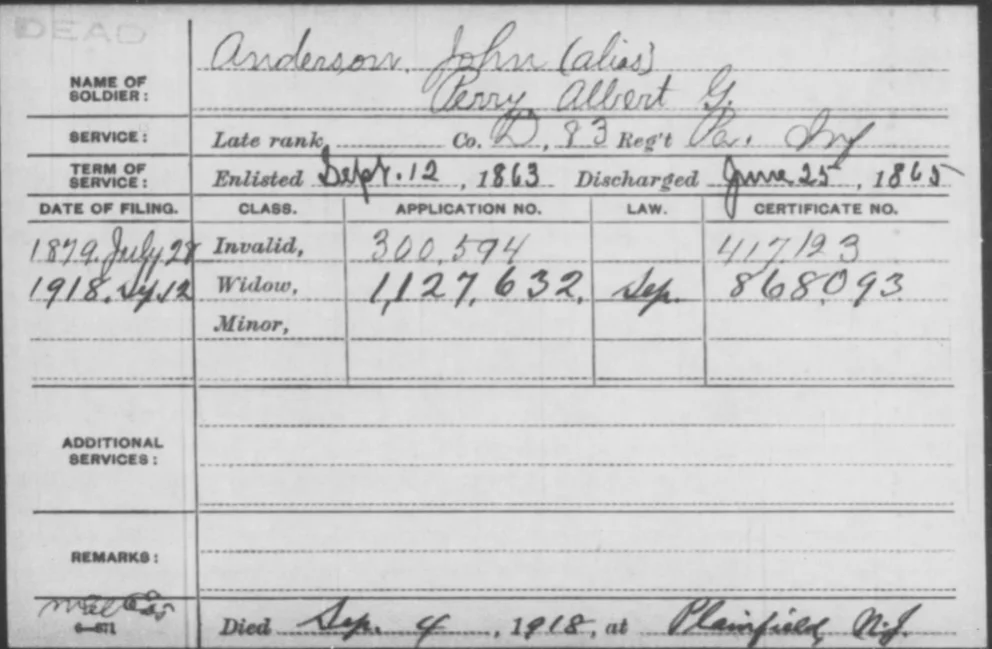 DEAD
Anderson, John (alias)
NAME OF SOLDIER:
Perry, Albert G.
SERVICE: Late rank, Co. D, 83 Reg't Pa. Inf
TERM OF SERVICE: Enlisted Sept. 12, 1863 Discharged June 25, 1865
DATE OF FILING. CLASS. APPLICATION NO. LAW. CERTIFICATE NO.
1879. July 28 Invalid, 300,594 417,123
1918. Sep. 12 Widow, 1,127,632. Sep. 868,093
Minor,
ADDITIONAL SERVICES:
REMARKS:
6—671
Died Sep. 4, 1918, at Plainfield, N.J.